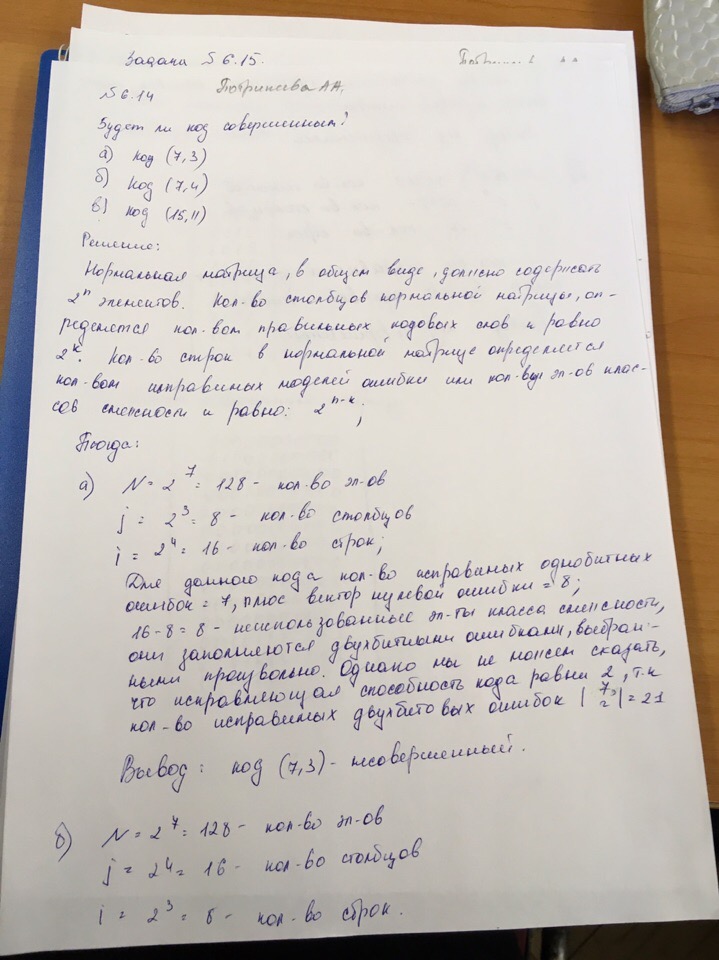 Задача № 6.15.
№ 6.14 Потрикеева АА,
Будет ли код совершенным?
а) код (7,3)
б) код (7,4)
в) код (15,11)
Решение:
Нормальная матрица, в общем виде, должно содержать
2ⁿ элементов. Кол-во столбцов нормальной матрицы, оп-
ределяется кол-вом правильных кодовых слов и равно
2ᵏ. Кол-во строк в нормальной матрице определяется
кол-вом исправимых моделей ошибки или кол-вом эл-ов клас-
сов смежности и равно: 2ⁿ⁻ᵏ;
Тогда:
а) N = 2⁷ = 128 - кол-во эл-ов
j = 2³ = 8 - кол-во столбцов
i = 2⁴ = 16 - кол-во строк;
Для данного кода кол-во исправимых однобитных
ошибок = 7, плюс вектор нулевой ошибки = 8;
16-8 = 8 - неиспользованные эл-ты класса смежности,
они заполняются двухбитными ошибками, выбран-
ными произвольно. Однако мы не можем сказать,
что исправляющая способность кода равна 2, т.к
кол-во исправимых двухбитовых ошибок |7 2| = 21
Вывод: код (7,3) - несовершенный.
б) N = 2⁷ = 128 - кол-во эл-ов
j = 2⁴ = 16 - кол-во столбцов
i = 2³ = 8 - кол-во строк.